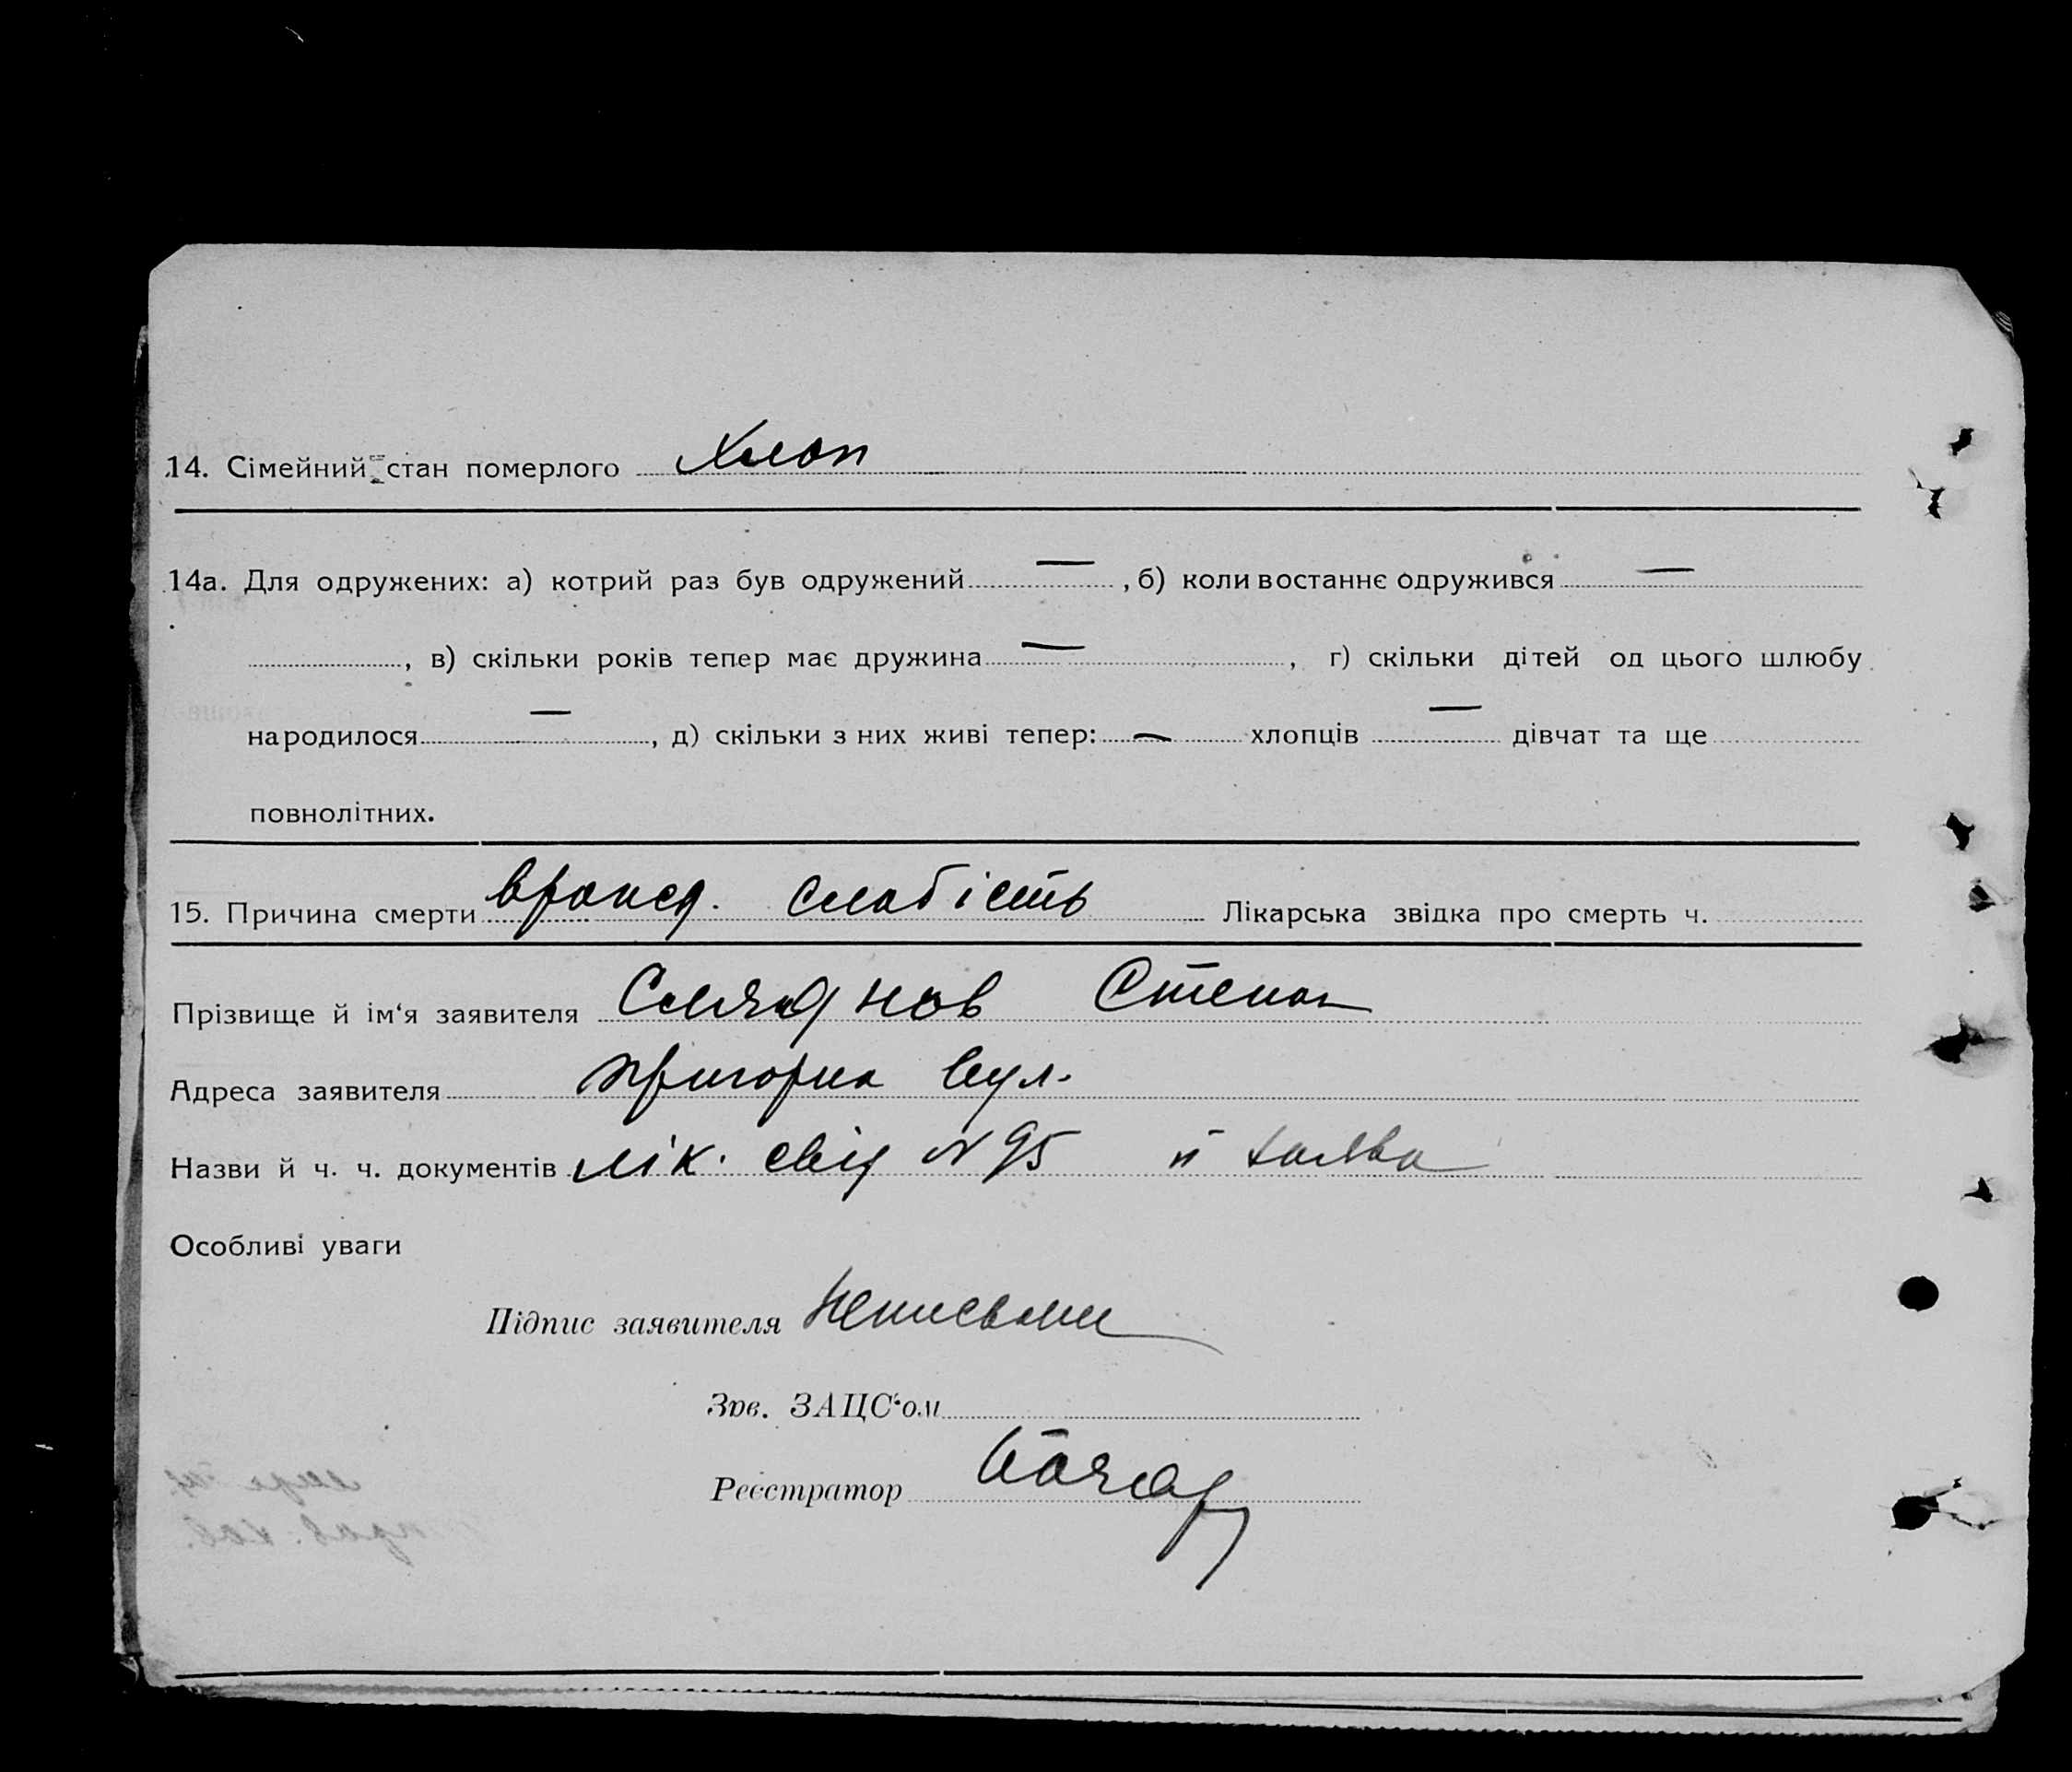 14. Сімейний стан померлого Хлоп
14а. Для одружених: а) котрий раз був одружений — , б) коли востаннє одружився —
, в) скільки років тепер має дружина — , г) скільки дітей од цього шлюбу
народилося — , д) скільки з них живі тепер: — хлопців — дівчат та ще
повнолітних.
15. Причина смерти врожд. слабість Лікарська звідка про смерть ч.
Прізвище й ім'я заявителя Степан
Адреса заявителя вул.
Назви й ч. ч. документів лік. свід N 95 й заява
Особливі уваги
Підпис заявителя
Зав. ЗАЦС'ом
Реєстратор